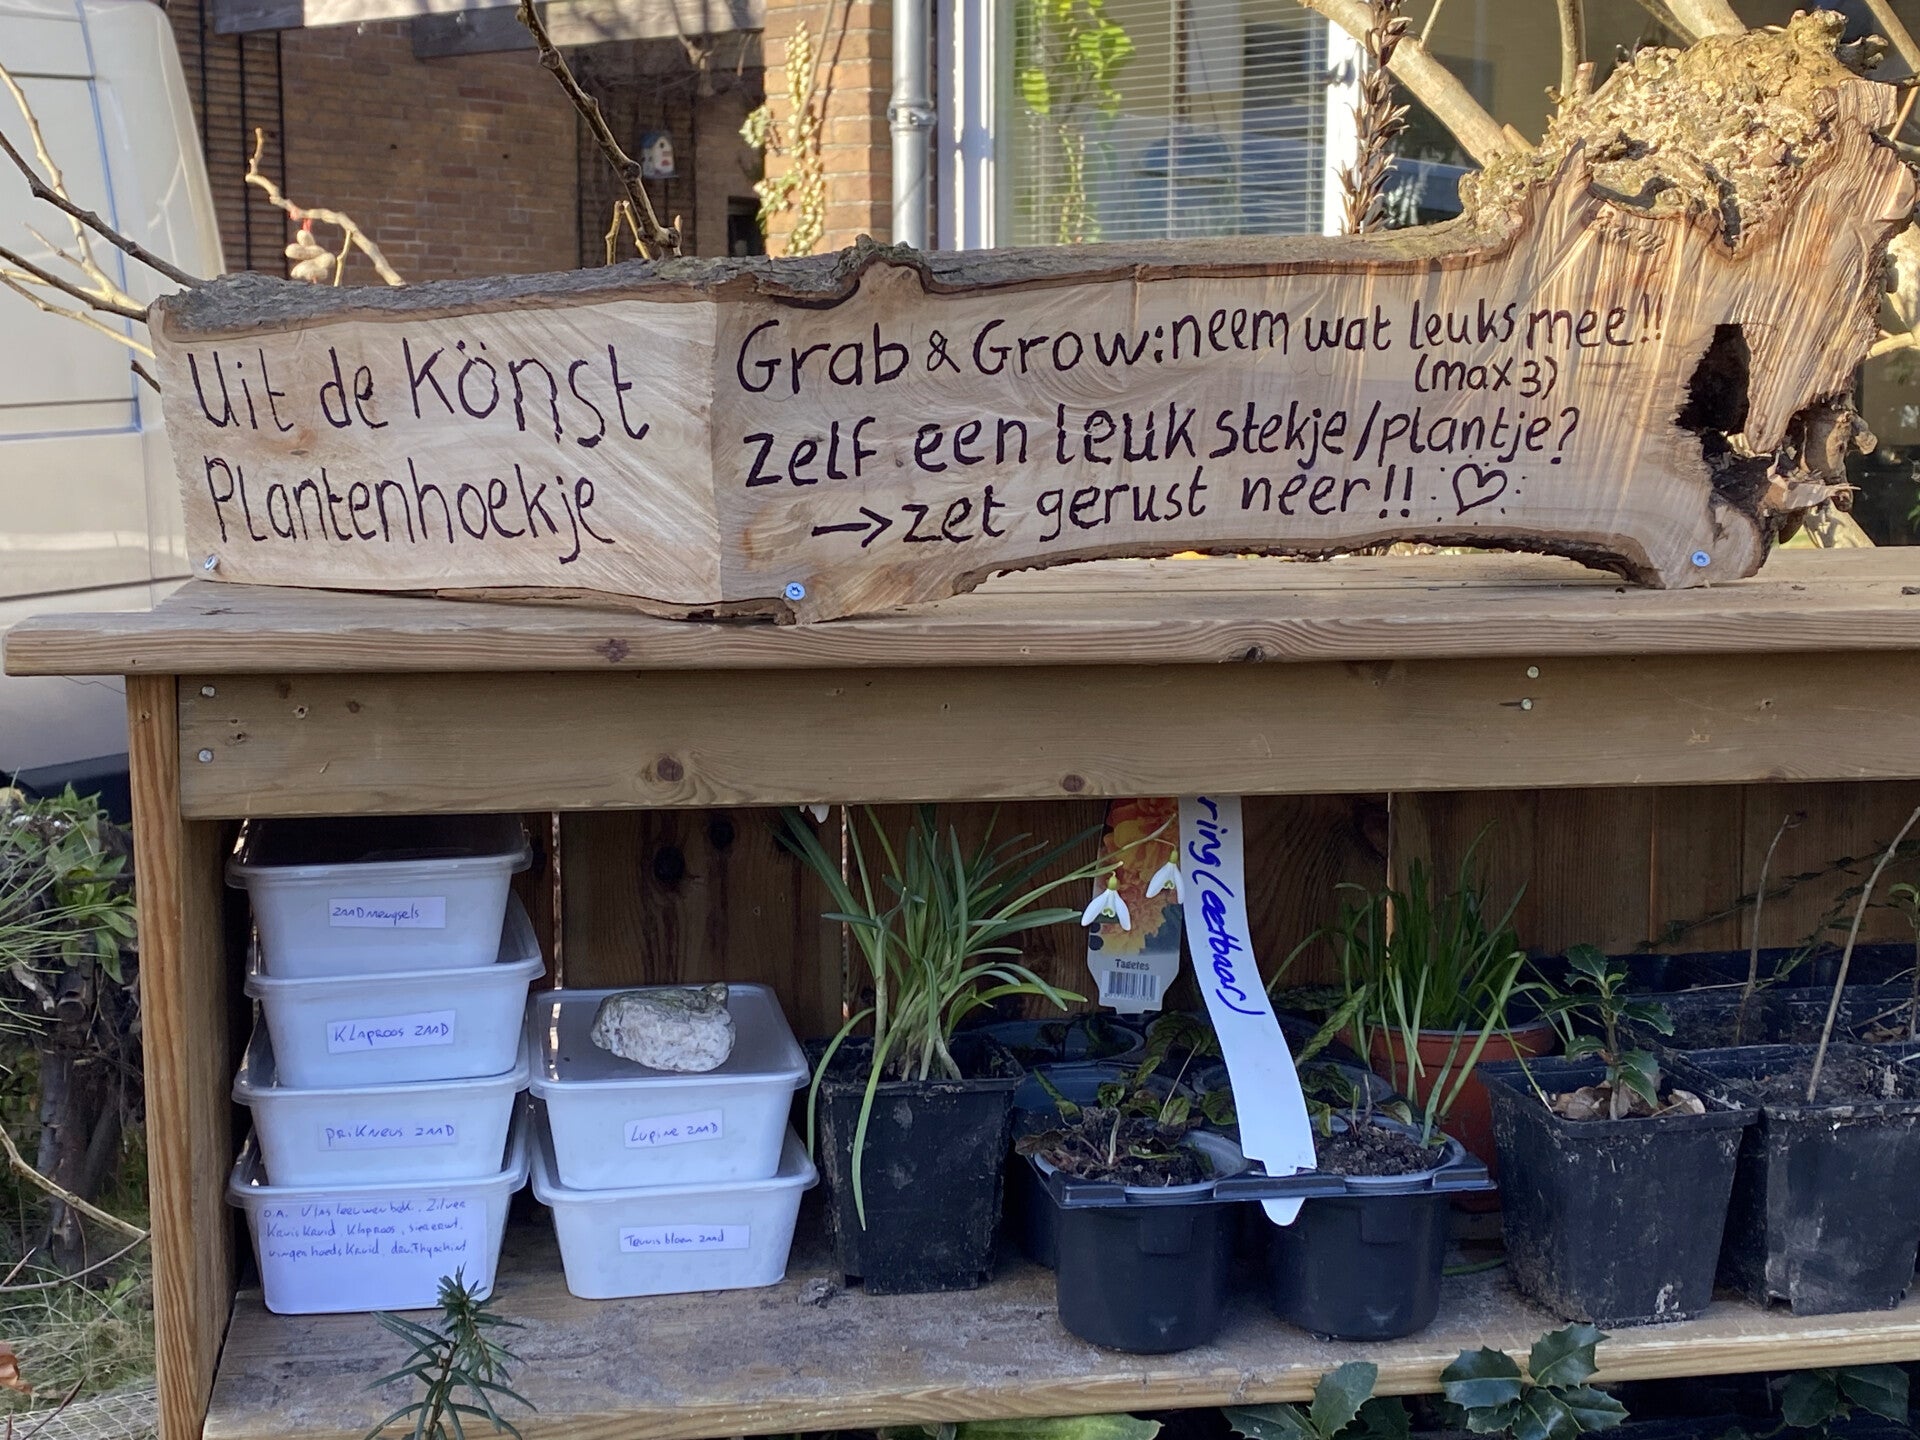 Uit de Könst
Plantenhoekje
Grab & Grow: neem wat leuks mee!!
(max 3)
zelf een leuk stekje/plantje?
→ zet gerust neer!! ♡
ZAADmengsels
Klaproos ZAAD
Prikneus ZAAD
O.A. Vlasleeuwenbek, Zilver
Kruiskruid, Klaproos,
vingerhoedskruid,
Lupine ZAAD
Teunisbloem zaad
Tagetes